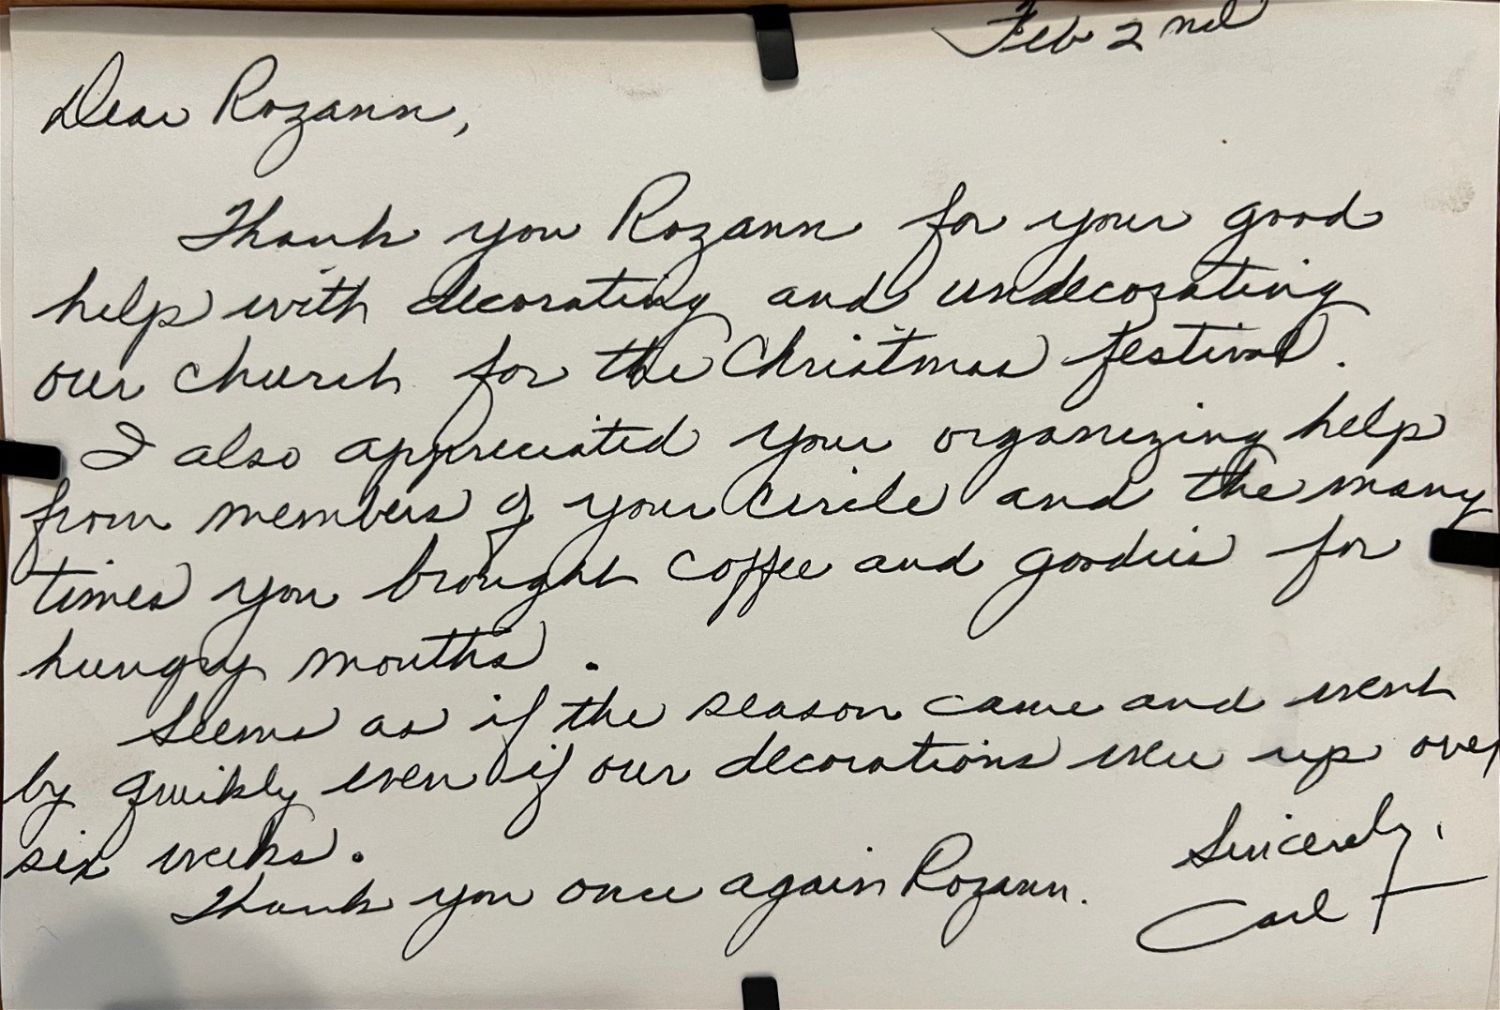 Feb 2nd
Dear Rozann,
Thank you Rozann for your good
help with decorating and undecorating
our church for the Christmas festival.
I also appreciated your organizing help
from members of your circle and the many
times you brought coffee and goodies for
hungry mouths.
Seems as if the season came and went
by quickly even if our decorations were up over
six weeks.
Thank you once again Rozann.
Sincerely,
Carl